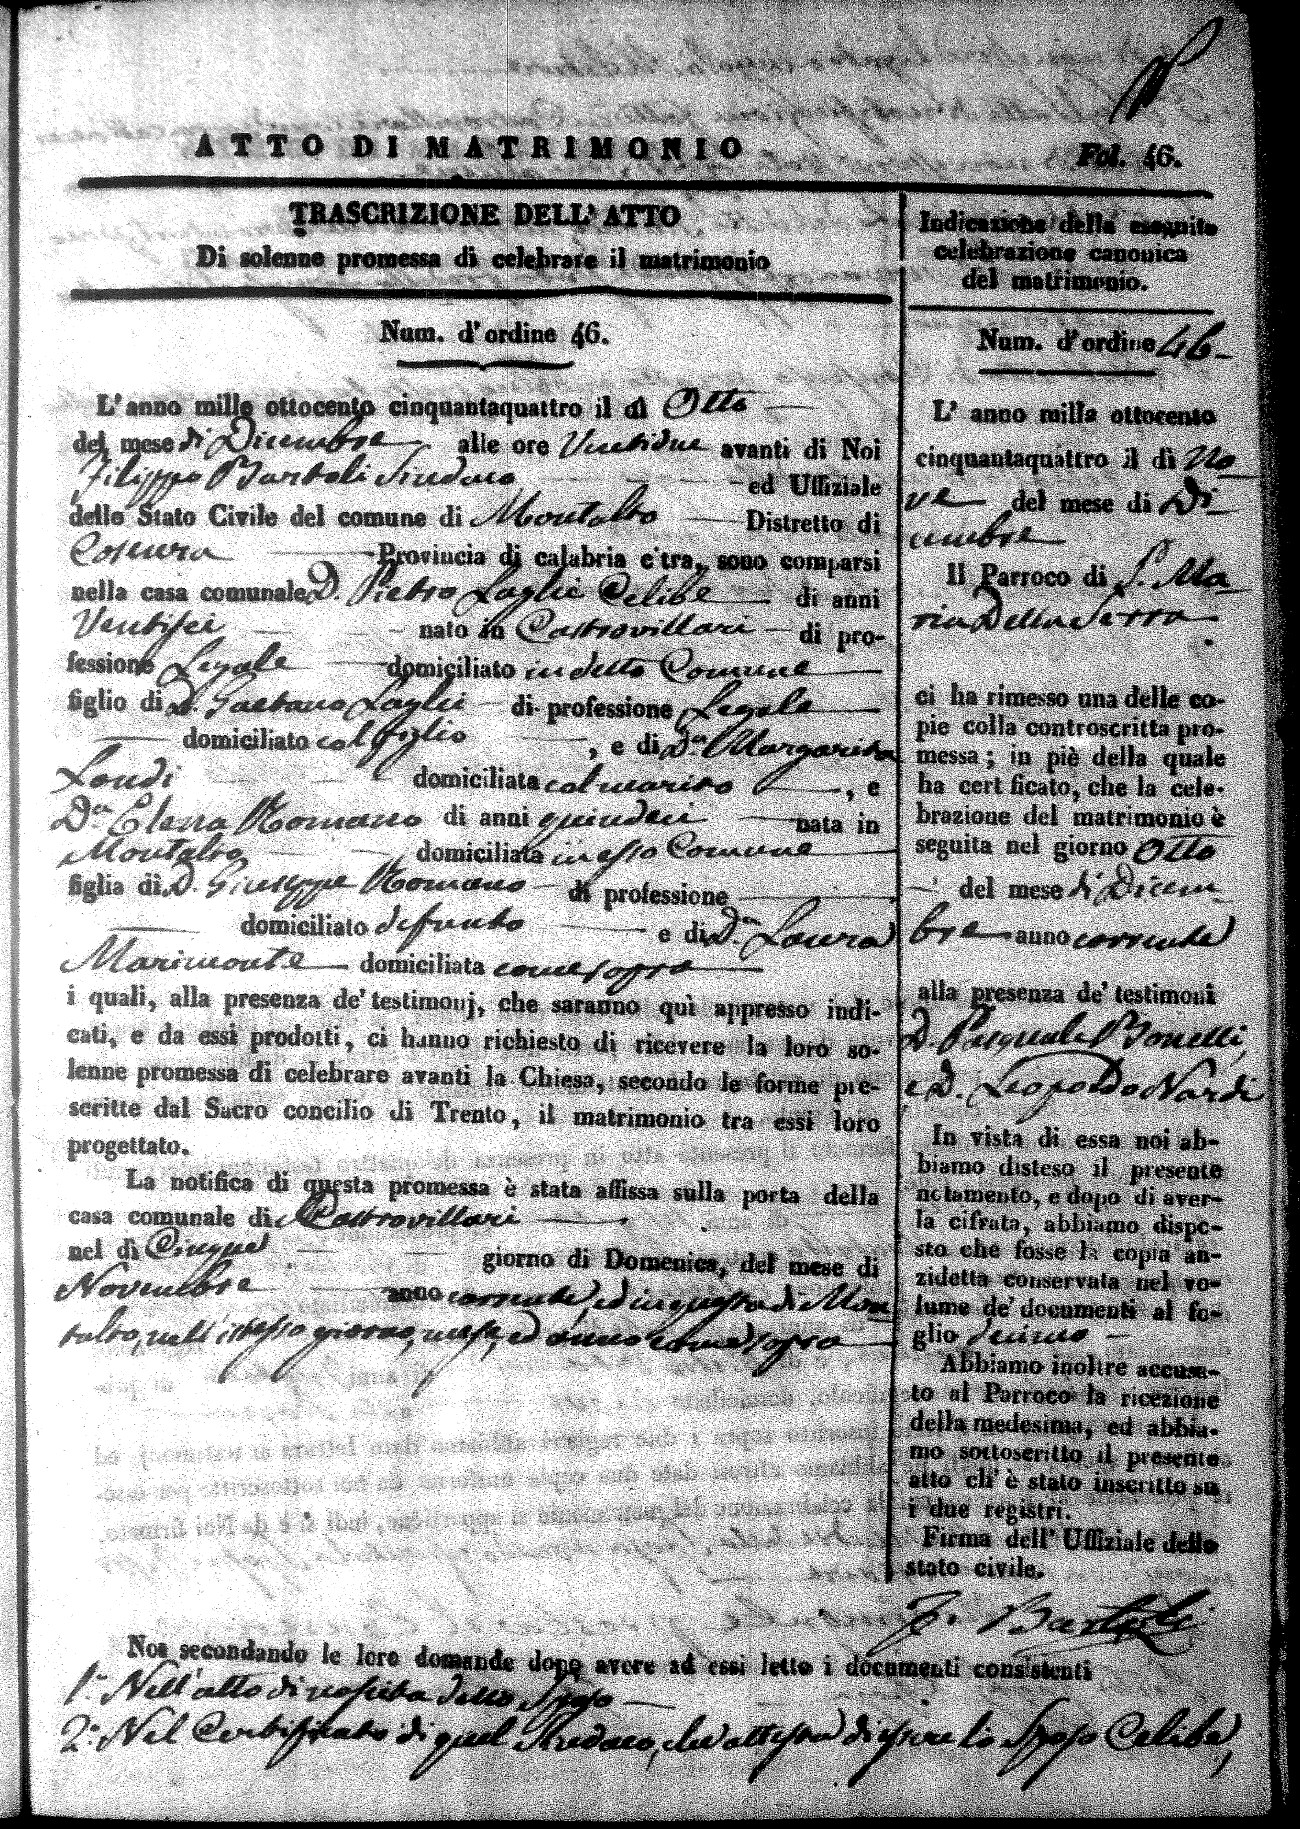 ATTO DI MATRIMONIO
Fol. 46.
TRASCRIZIONE DELL' ATTO
Di solenne promessa di celebrare il matrimonio
Num. d' ordine 46.
L' anno mille ottocento cinquantaquattro il dì Otto
del mese di Dicembre alle ore Ventidue avanti di Noi
Filippo Bartoli Sindaco ed Uffiziale
dello Stato Civile del comune di Montalto Distretto di
Cosenza Provincia di calabria citra, sono comparsi
nella casa comunale D. Pietro Laghi Celibe di anni
Ventisei nato in Castrovillari di pro-
fessione Legale domiciliato in detto Comune
figlio di D. Gaetano Laghi di professione Legale
domiciliato col figlio , e di D.na Margarita
Londi domiciliata col marito , e
D.na Elena Romano di anni quindici nata in
Montalto domiciliata in esso Comune
figlia di D. Giuseppe Romano di professione
domiciliato defunto e di D.na Laura
Marimonte domiciliata come sopra
i quali, alla presenza de' testimonj, che saranno quì appresso indi-
cati, e da essi prodotti, ci hanno richiesto di ricevere la loro so-
lenne promessa di celebrare avanti la Chiesa, secondo le forme pre-
scritte dal Sacro concilio di Trento, il matrimonio tra essi loro
progettato.
La notifica di questa promessa è stata affissa sulla porta della
casa comunale di Castrovillari
nel dì Cinque giorno di Domenica, del mese di
Novembre anno corrente, ed in questa di Mon
talto, nell' istesso giorno, mese, ed anno come sopra
Indicazione della eseguita
celebrazione canonica
del matrimonio.
Num. d' ordine 46
L' anno mille ottocento
cinquantaquattro il dì No
ve del mese di Di
cembre
Il Parroco di S. Ma
ria Della Serra
ci ha rimesso una delle co-
pie colla controscritta pro-
messa; in piè della quale
ha certificato, che la cele-
brazione del matrimonio è
seguita nel giorno Otto
del mese di Dicem
bre anno corrente
alla presenza de' testimoni
D. Pasquale Bonelli,
e D. Leopoldo Nardi
In vista di essa noi ab-
biamo disteso il presente
notamento, e dopo di aver-
la cifrata, abbiamo dispo-
sto che fosse la copia an-
zidetta conservata nel vo-
lume de' documenti al fo-
glio decimo
Abbiamo inoltre accusa-
to al Parroco la ricezione
della medesima, ed abbia-
mo sottoscritto il presente
atto ch' è stato inscritto su
i due registri.
Firma dell' Uffiziale dello
stato civile.
F. Bartoli
Noi secondando le loro domande dopo avere ad essi letto i documenti consistenti
1.° Nell' atto di nascita dello Sposo
2.° Nel Certificato di quel Sindaco, che attesta di essere lo Sposo Celibe,